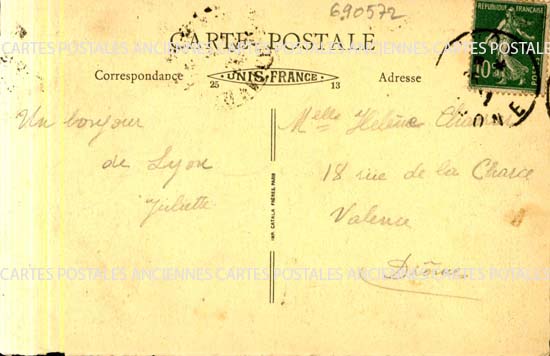 690572
CARTE POSTALE
CARTES POSTALES ANCIENNES CARTES POSTALES ANCIENNES CARTES POSTALES
Correspondance
UNIS-FRANCE
25 13
Adresse
REPUBLIQUE FRANÇAISE
10
Un bonjour
de Lyon
Juliette
IMP. CATALA FRÈRES, PARIS
Melle Helène
18 rue de la Charce
Valence
Drôme
CARTES POSTALES ANCIENNES CARTES POSTALES ANCIENNES CARTES POSTALES